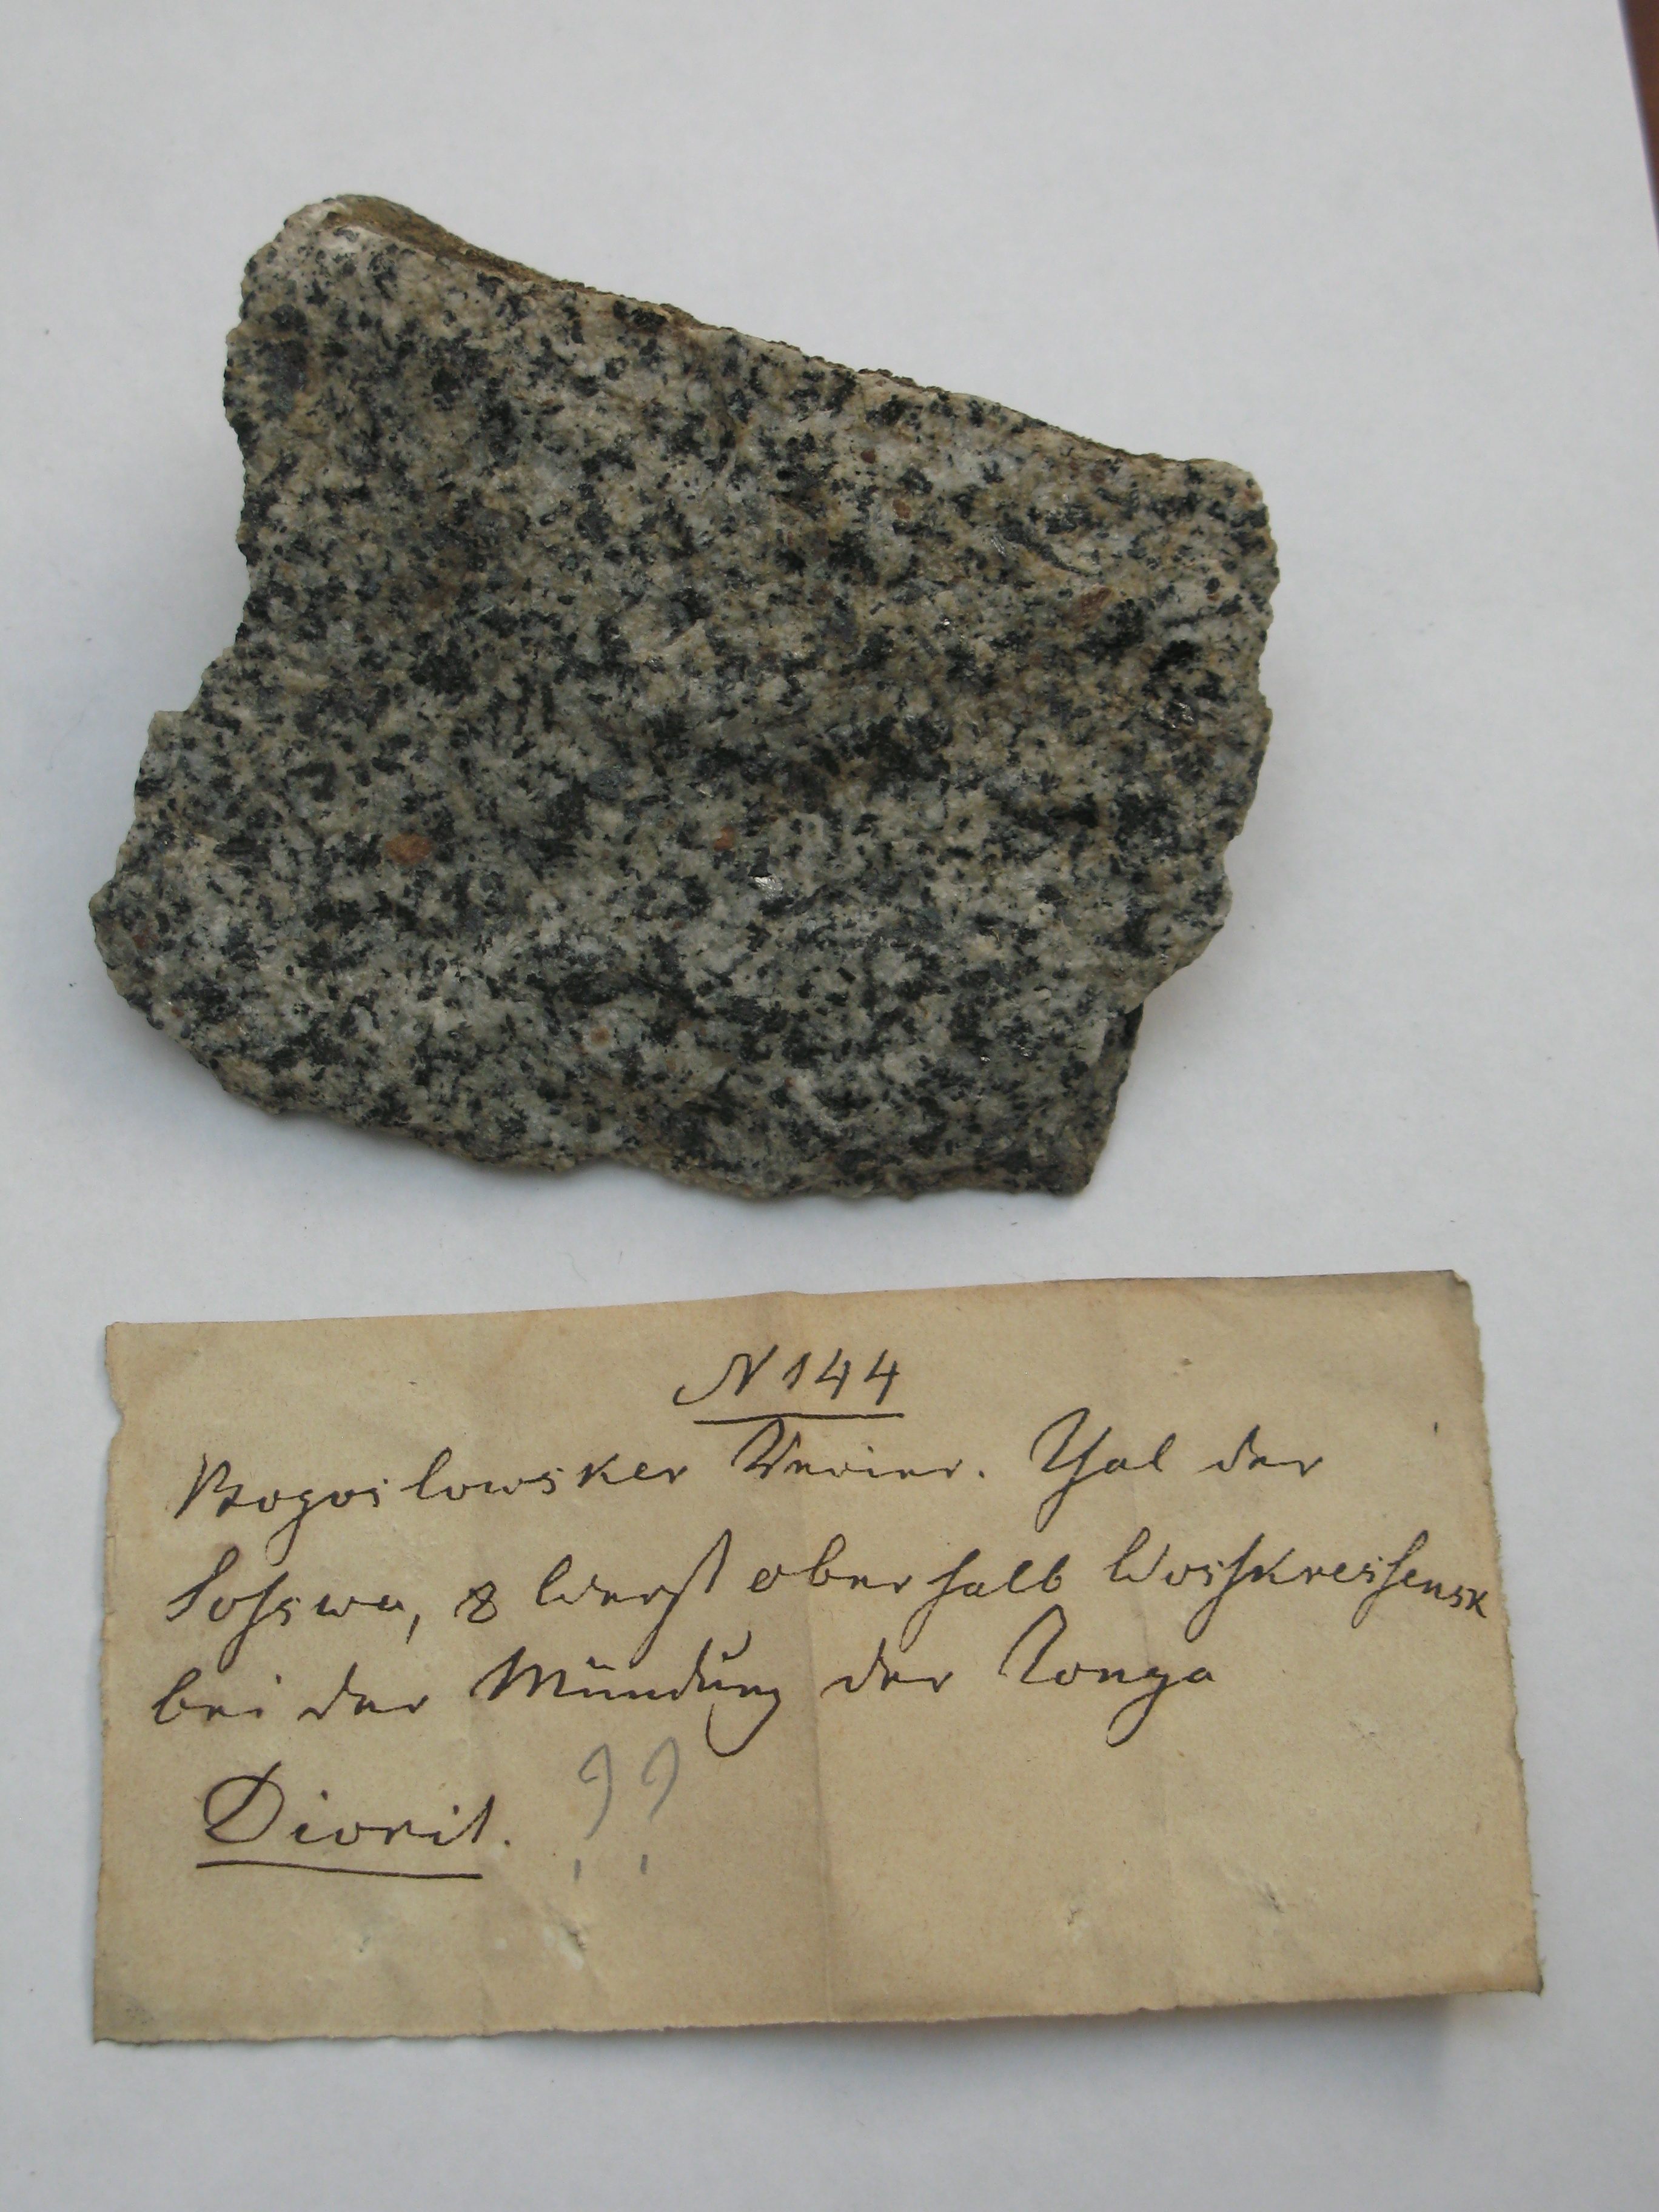 N 144
Bogoslowsker Revier. Thal der
Sosswa, 8 Werst oberhalb Woskressensk
bei der Mündung der Tonga
Diorit. ??